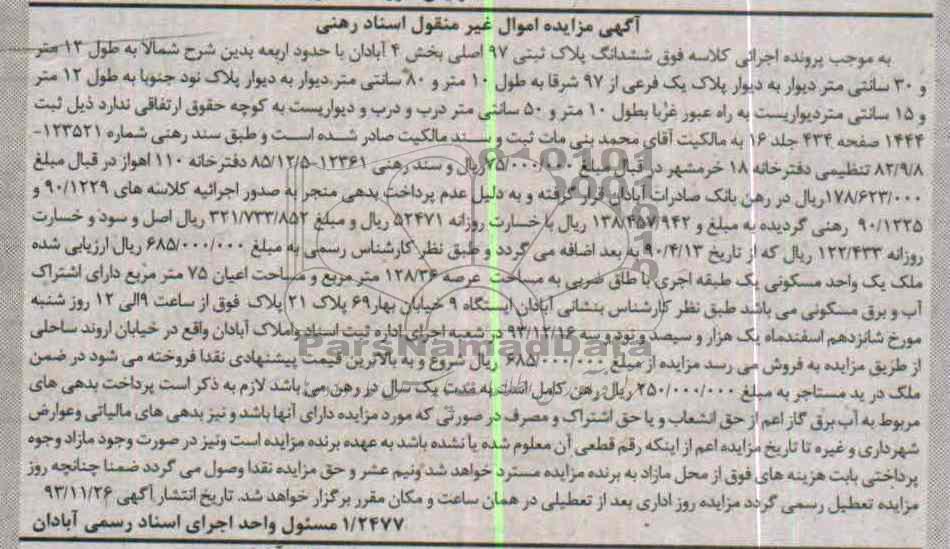 آگهی مزایده اموال غیر منقول اسناد رهنی
به موجب پرونده اجرائی کلاسه فوق ششدانگ پلاک ثبتی ۹۷ اصلی بخش ۴ آبادان با حدود اربعه بدین شرح شمالا به طول ۱۳ متر
و ۳۰ سانتی متر دیوار به دیوار پلاک یک فرعی از ۹۷ شرقا به طول ۱۰ متر و ۸۰ سانتی متر.دیوار به دیوار پلاک نود جنوبا به طول ۱۲ متر
و ۱۵ سانتی متردیواریست به راه عبور غربا بطول ۱۰ متر و ۵۰ سانتی متر درب و درب و دیواریست به کوچه حقوق ارتفاقی ندارد ذیل ثبت
۱۴۴۴ صفحه ۴۳۴ جلد ۱۶ به مالکیت آقای محمد بنی مات ثبت و سند مالکیت صادر شده است و طبق سند رهنی شماره ۱۲۳۵۲۱-
۸۲/۹/۸ تنظیمی دفترخانه ۱۸ خرمشهر در قبال مبلغ ۷۵/۰۰۰/۰۰۰ریال و سند رهنی ۱۲۳۶۱-۸۵/۱۲/۵ دفترخانه ۱۱۰ اهواز در قبال مبلغ
۱۷۸/۶۲۳/۰۰۰ریال در رهن بانک صادرات آبادان قرار گرفته و به دلیل عدم پرداخت بدهی منجر به صدور اجرائیه کلاسه های ۹۰/۱۲۲۹ و
۹۰/۱۲۳۵ رهنی گردیده به مبلغ و ۱۳۸/۴۵۷/۹۴۲ ریال با خسارت روزانه ۵۲۴۷۱ ریال و مبلغ ۳۲۱/۷۳۳/۸۵۲ ریال اصل و سود و خسارت
روزانه ۱۲۲/۴۳۳ ریال که از تاریخ ۹۰/۴/۱۳ به بعد اضافه می گردد و طبق نظر کارشناس رسمی به مبلغ ۶۸۵/۰۰۰/۰۰۰ ریال ارزیابی شده
ملک یک واحد مسکونی یک طبقه اجری با طاق ضربی به مساحت عرصه ۱۲۸/۳۶ متر مربع و مساحت اعیان ۷۵ متر مربع دارای اشتراک
آب و برق مسکونی می باشد طبق نظر کارشناس بنشانی آبادان ایستگاه ۹ خیابان بهار۶۹ پلاک ۲۱ پلاک فوق از ساعت ۹الی ۱۲ روز شنبه
مورخ شانزدهم اسفندماه یک هزار و سیصد و نود و سه ۹۳/۱۲/۱۶ در شعبه اجرای اداره ثبت اسناد واملاک آبادان واقع در خیابان اروند ساحلی
از طریق مزایده به فروش می رسد مزایده از مبلغ ۶۸۵/۰۰۰/۰۰۰ ریال شروع و به بالاترین قیمت پیشنهادی نقدا فروخته می شود در ضمن
ملک در ید مستاجر به مبلغ ۲۵۰/۰۰۰/۰۰۰ ریال رهن کامل است به مدت یک سال در رهن می باشد لازم به ذکر است پرداخت بدهی های
مربوط به آب برق گاز اعم از حق انشعاب و یا حق اشتراک و مصرف در صورتی که مورد مزایده دارای آنها باشد و نیز بدهی های مالیاتی وعوارض
شهرداری و غیره تا تاریخ مزایده اعم از اینکه رقم قطعی آن معلوم شده یا نشده باشد به عهده برنده مزایده است ونیز در صورت وجود مازاد وجوه
پرداختی بابت هزینه های فوق از محل مازاد به برنده مزایده مسترد خواهد شد ونیم عشر و حق مزایده نقدا وصول می گردد ضمنا چنانچه روز
مزایده تعطیل رسمی گردد مزایده روز اداری بعد از تعطیلی در همان ساعت و مکان مقرر برگزار خواهد شد. تاریخ انتشار آگهی ۹۳/۱۱/۲۶
۱/۲۴۷۷ مسئول واحد اجرای اسناد رسمی آبادان
ParsNamadData